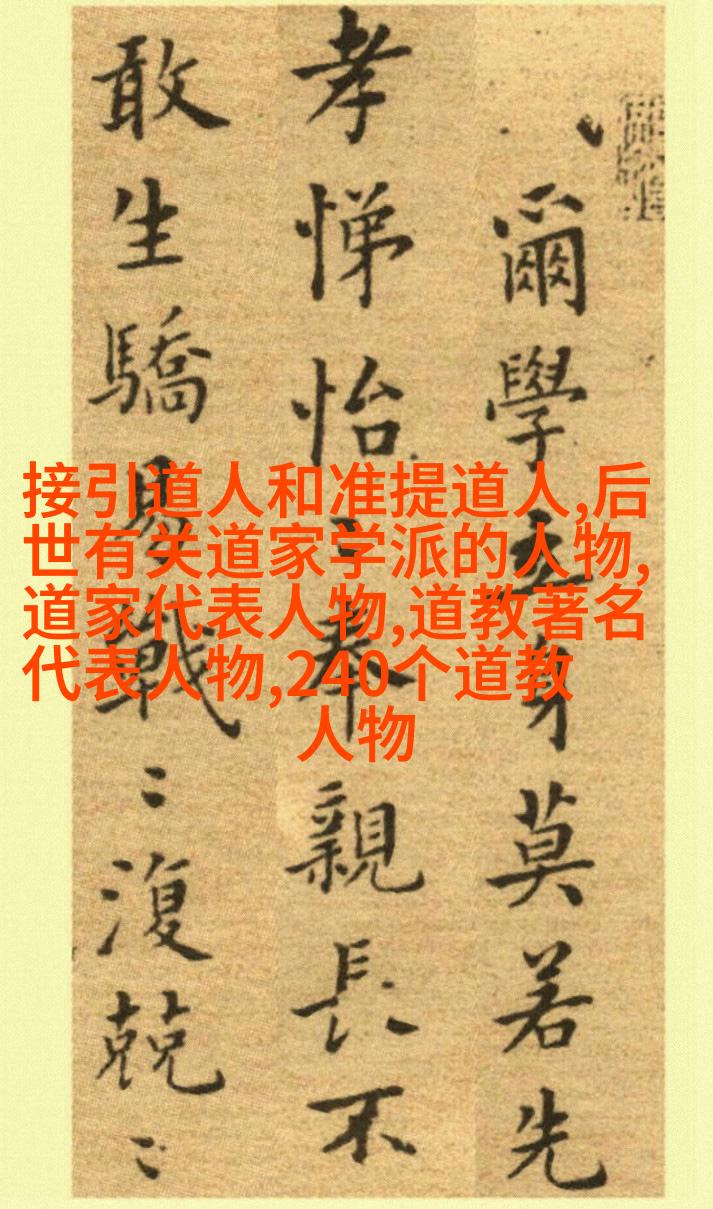 爾學立身莫若先
孝悌怡〻奉親長不
敢生驕易戰〻復兢〻
接引道人和准提道人,后
世有关道家学派的人物,
道家代表人物,道教著名
代表人物,240个道教
人物